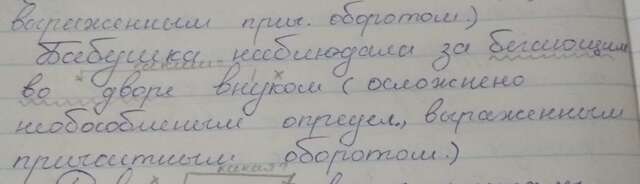 выраженным прич. оборотом.)
Бабушка наблюдала за бегающим
во дворе внуком (осложнено
необособленным определ., выраженным
причастным оборотом.)
какая?